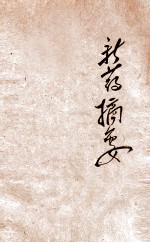 新药摘要